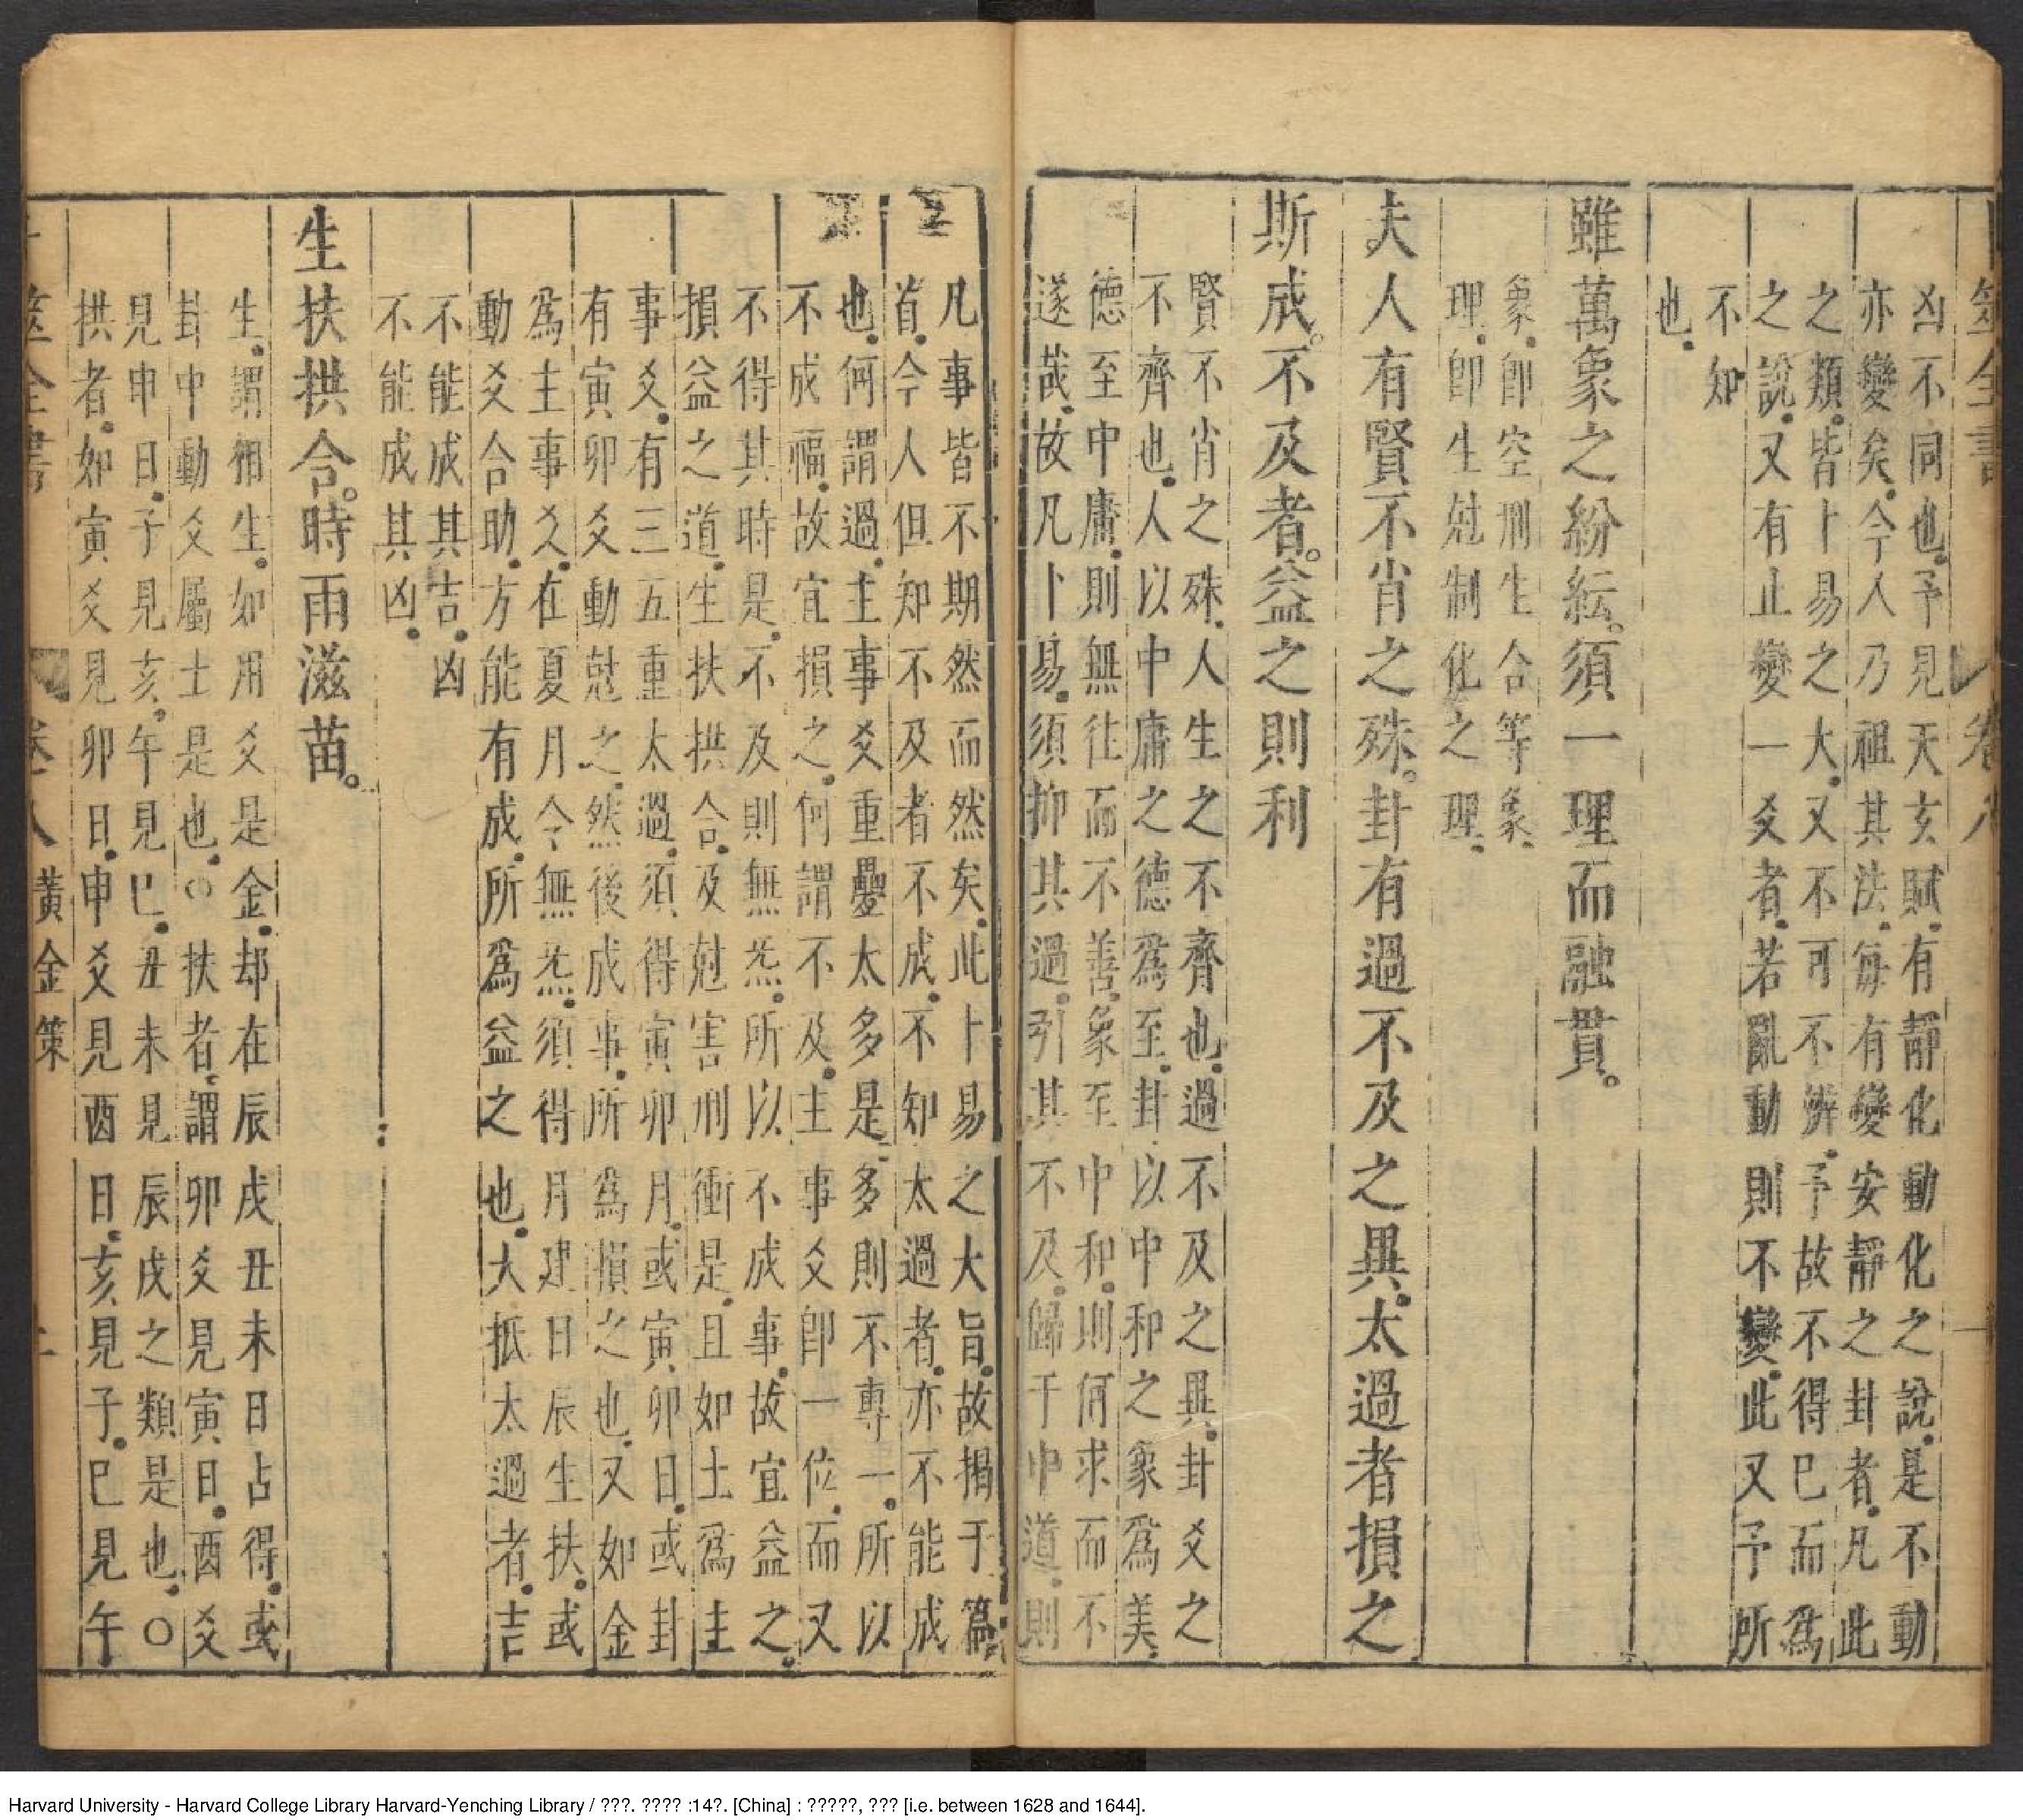 凶不同也予見天玄賦有靜化動化之說是不動
亦變矣今人乃祖其法每有變安靜之卦者凡此
之類皆卜易之大又不可不辨予故不得巳而爲
之說又有止變一爻者若亂動則不變此又予所
不知
也
雖萬象之紛紜。須一理而融貫。
象卽空刑生合等象
理卽生尅制化之理
夫人有賢不肖之殊。卦有過不及之異太過者損之
斯成。不及者。益之則利
賢不肖之殊人生之不齊也過不及之異卦爻之
不齊也人以中庸之德爲至卦以中和之象爲美
德至中庸則無往而不善象至中和則何求而不
遂哉故凡卜易須抑其過引其不及歸于中道則
凡事皆不期然而然矣此卜易之大旨故揭于篇
首今人但知不及者不成不知太過者亦不能成
也何謂過主事爻重疊太多是多則不專一所以
不成福故宜損之何謂不及主事爻卽一位而又
不得其時是不及則無炁所以不成事故宜益之
損益之道生扶拱合及尅害刑衝是且如土爲主
事爻有三五重太過須得寅卯月或寅卯日或卦
有寅卯爻動尅之然後成事所爲損之也又如金
爲主事爻在夏月令無炁須得月建日辰生扶或
動爻合助方能有成所爲益之也大抵太過者吉
不能成其吉凶
不能成其凶
生扶拱合。時雨滋苗。
生謂相生如用爻是金却在辰戌丑未日占得或
卦中動爻屬土是也○扶者謂卯爻見寅日酉爻
見申日子見亥午見巳丑未見辰戌之類是也○
拱者如寅爻見卯日申爻見酉日亥見子巳見午
卷八 黃金策